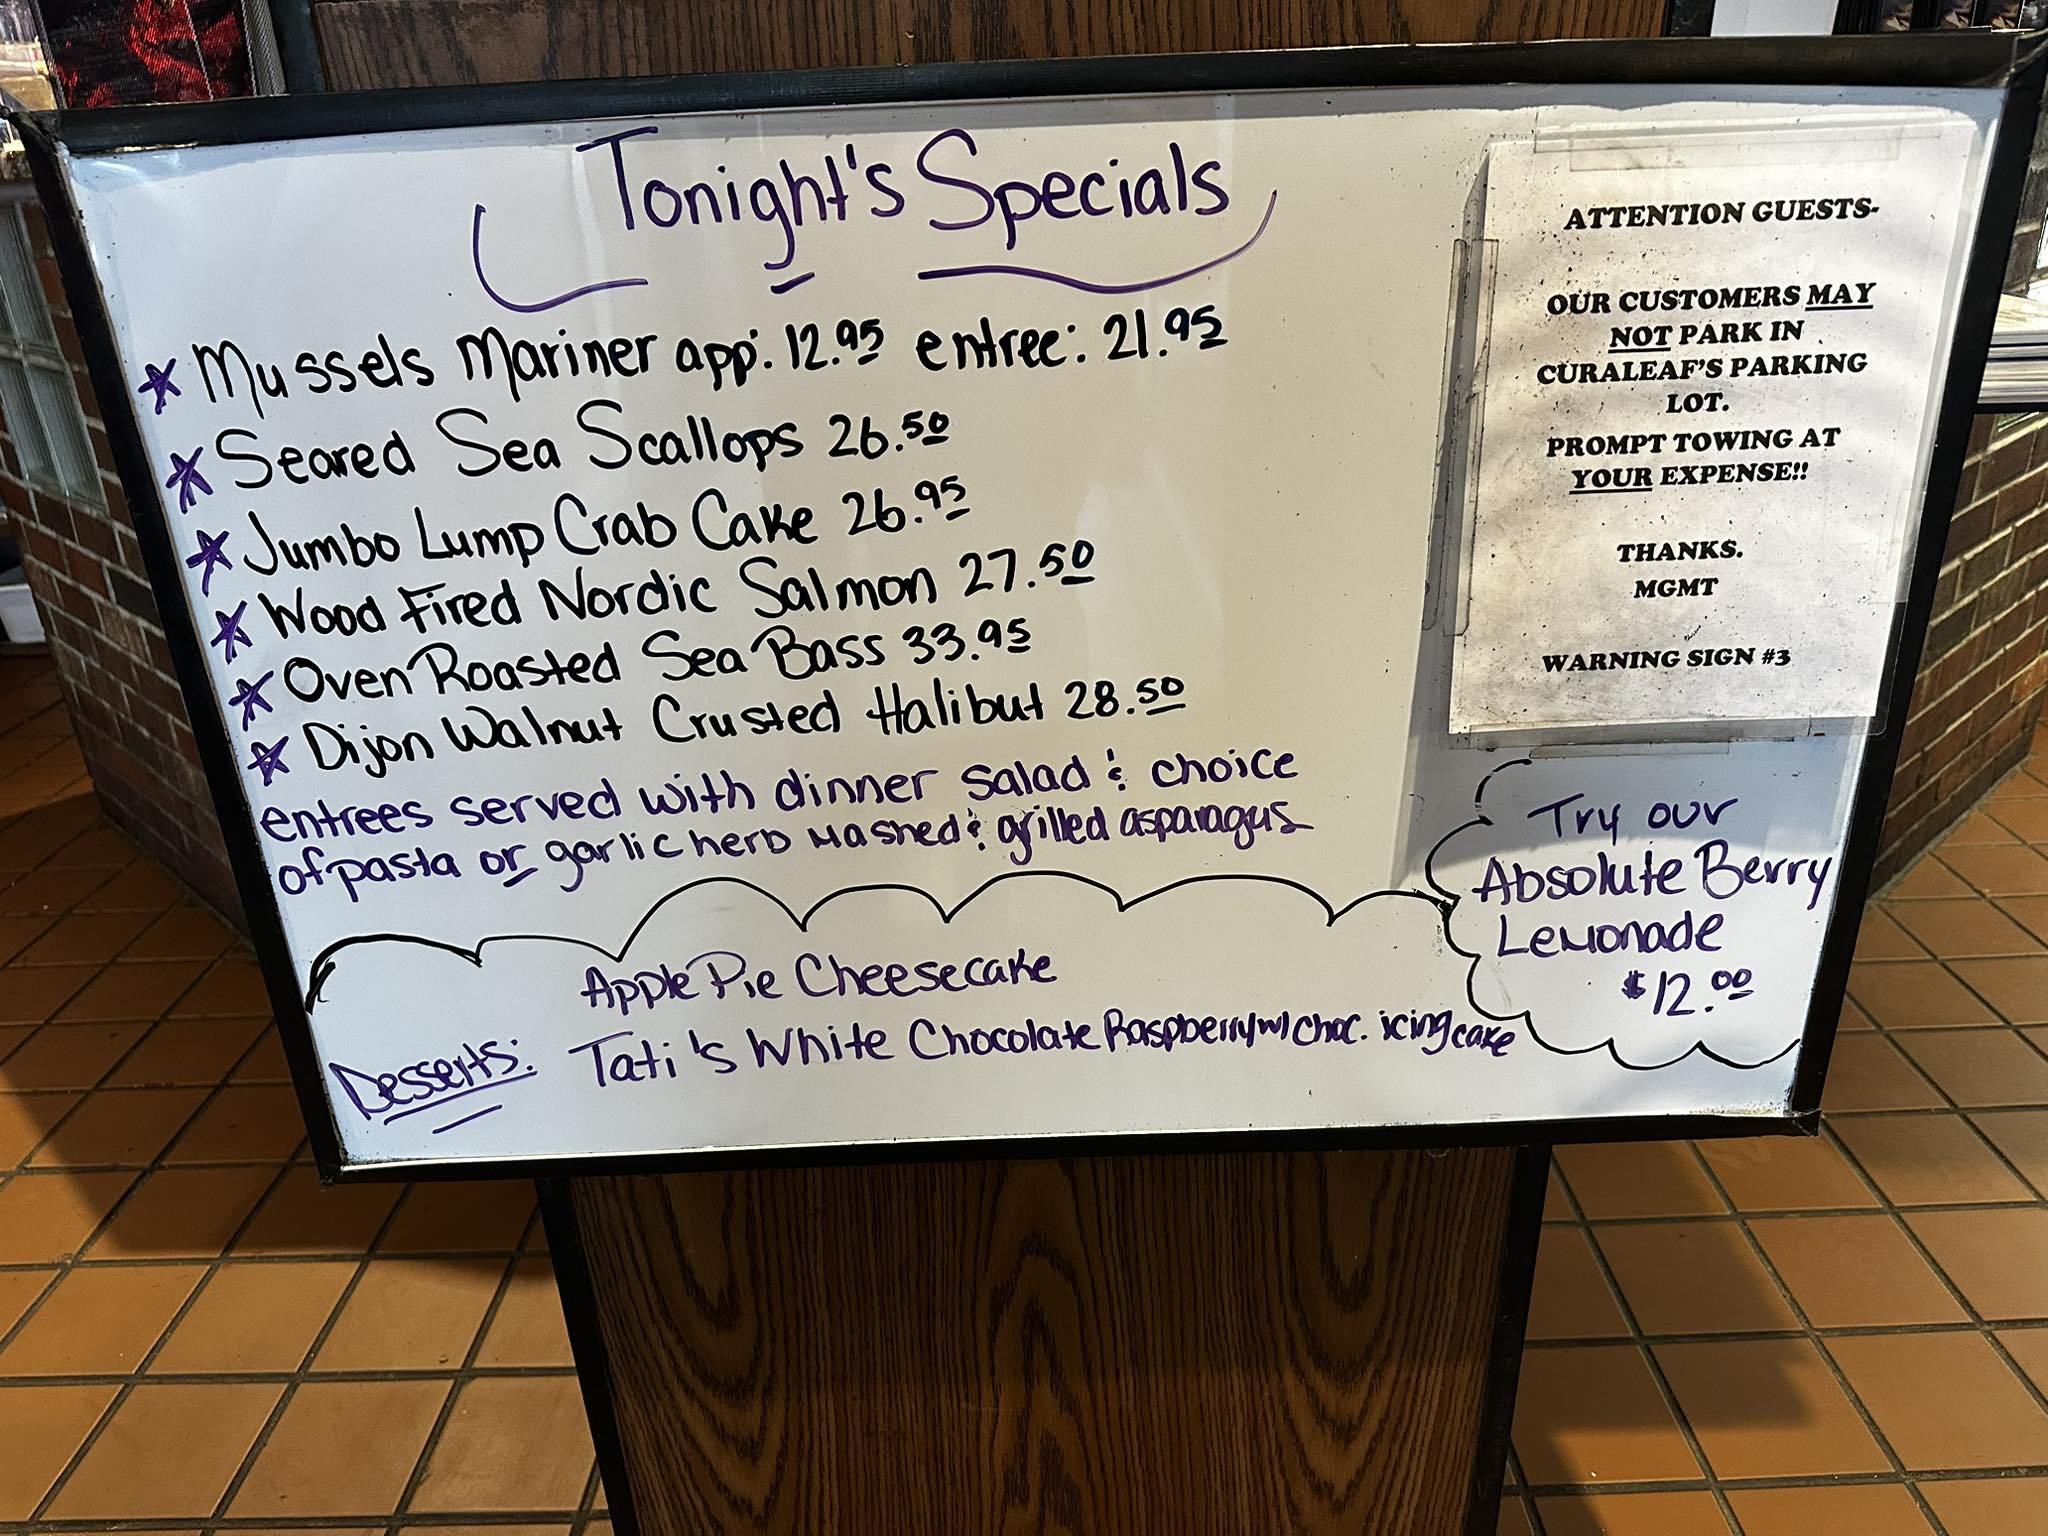 Tonight's Specials
Mussels Mariner app: 12.95 entree: 21.95
Seared Sea Scallops 26.50
Jumbo Lump Crab Cake 26.95
Wood Fired Nordic Salmon 27.50
Oven Roasted Sea Bass 33.95
Dijon Walnut Crusted Halibut 28.50
entrees served with dinner salad & choice
of pasta or garlic herb mashed & grilled asparagus
Desserts:
Apple Pie Cheesecake
Tati's White Chocolate Raspberry w/ choc. icing cake
ATTENTION GUESTS-
OUR CUSTOMERS MAY
NOT PARK IN
CURALEAF'S PARKING
LOT.
PROMPT TOWING AT
YOUR EXPENSE!!
THANKS.
MGMT
WARNING SIGN #3
Try our
Absolute Berry
Lemonade
$12.00